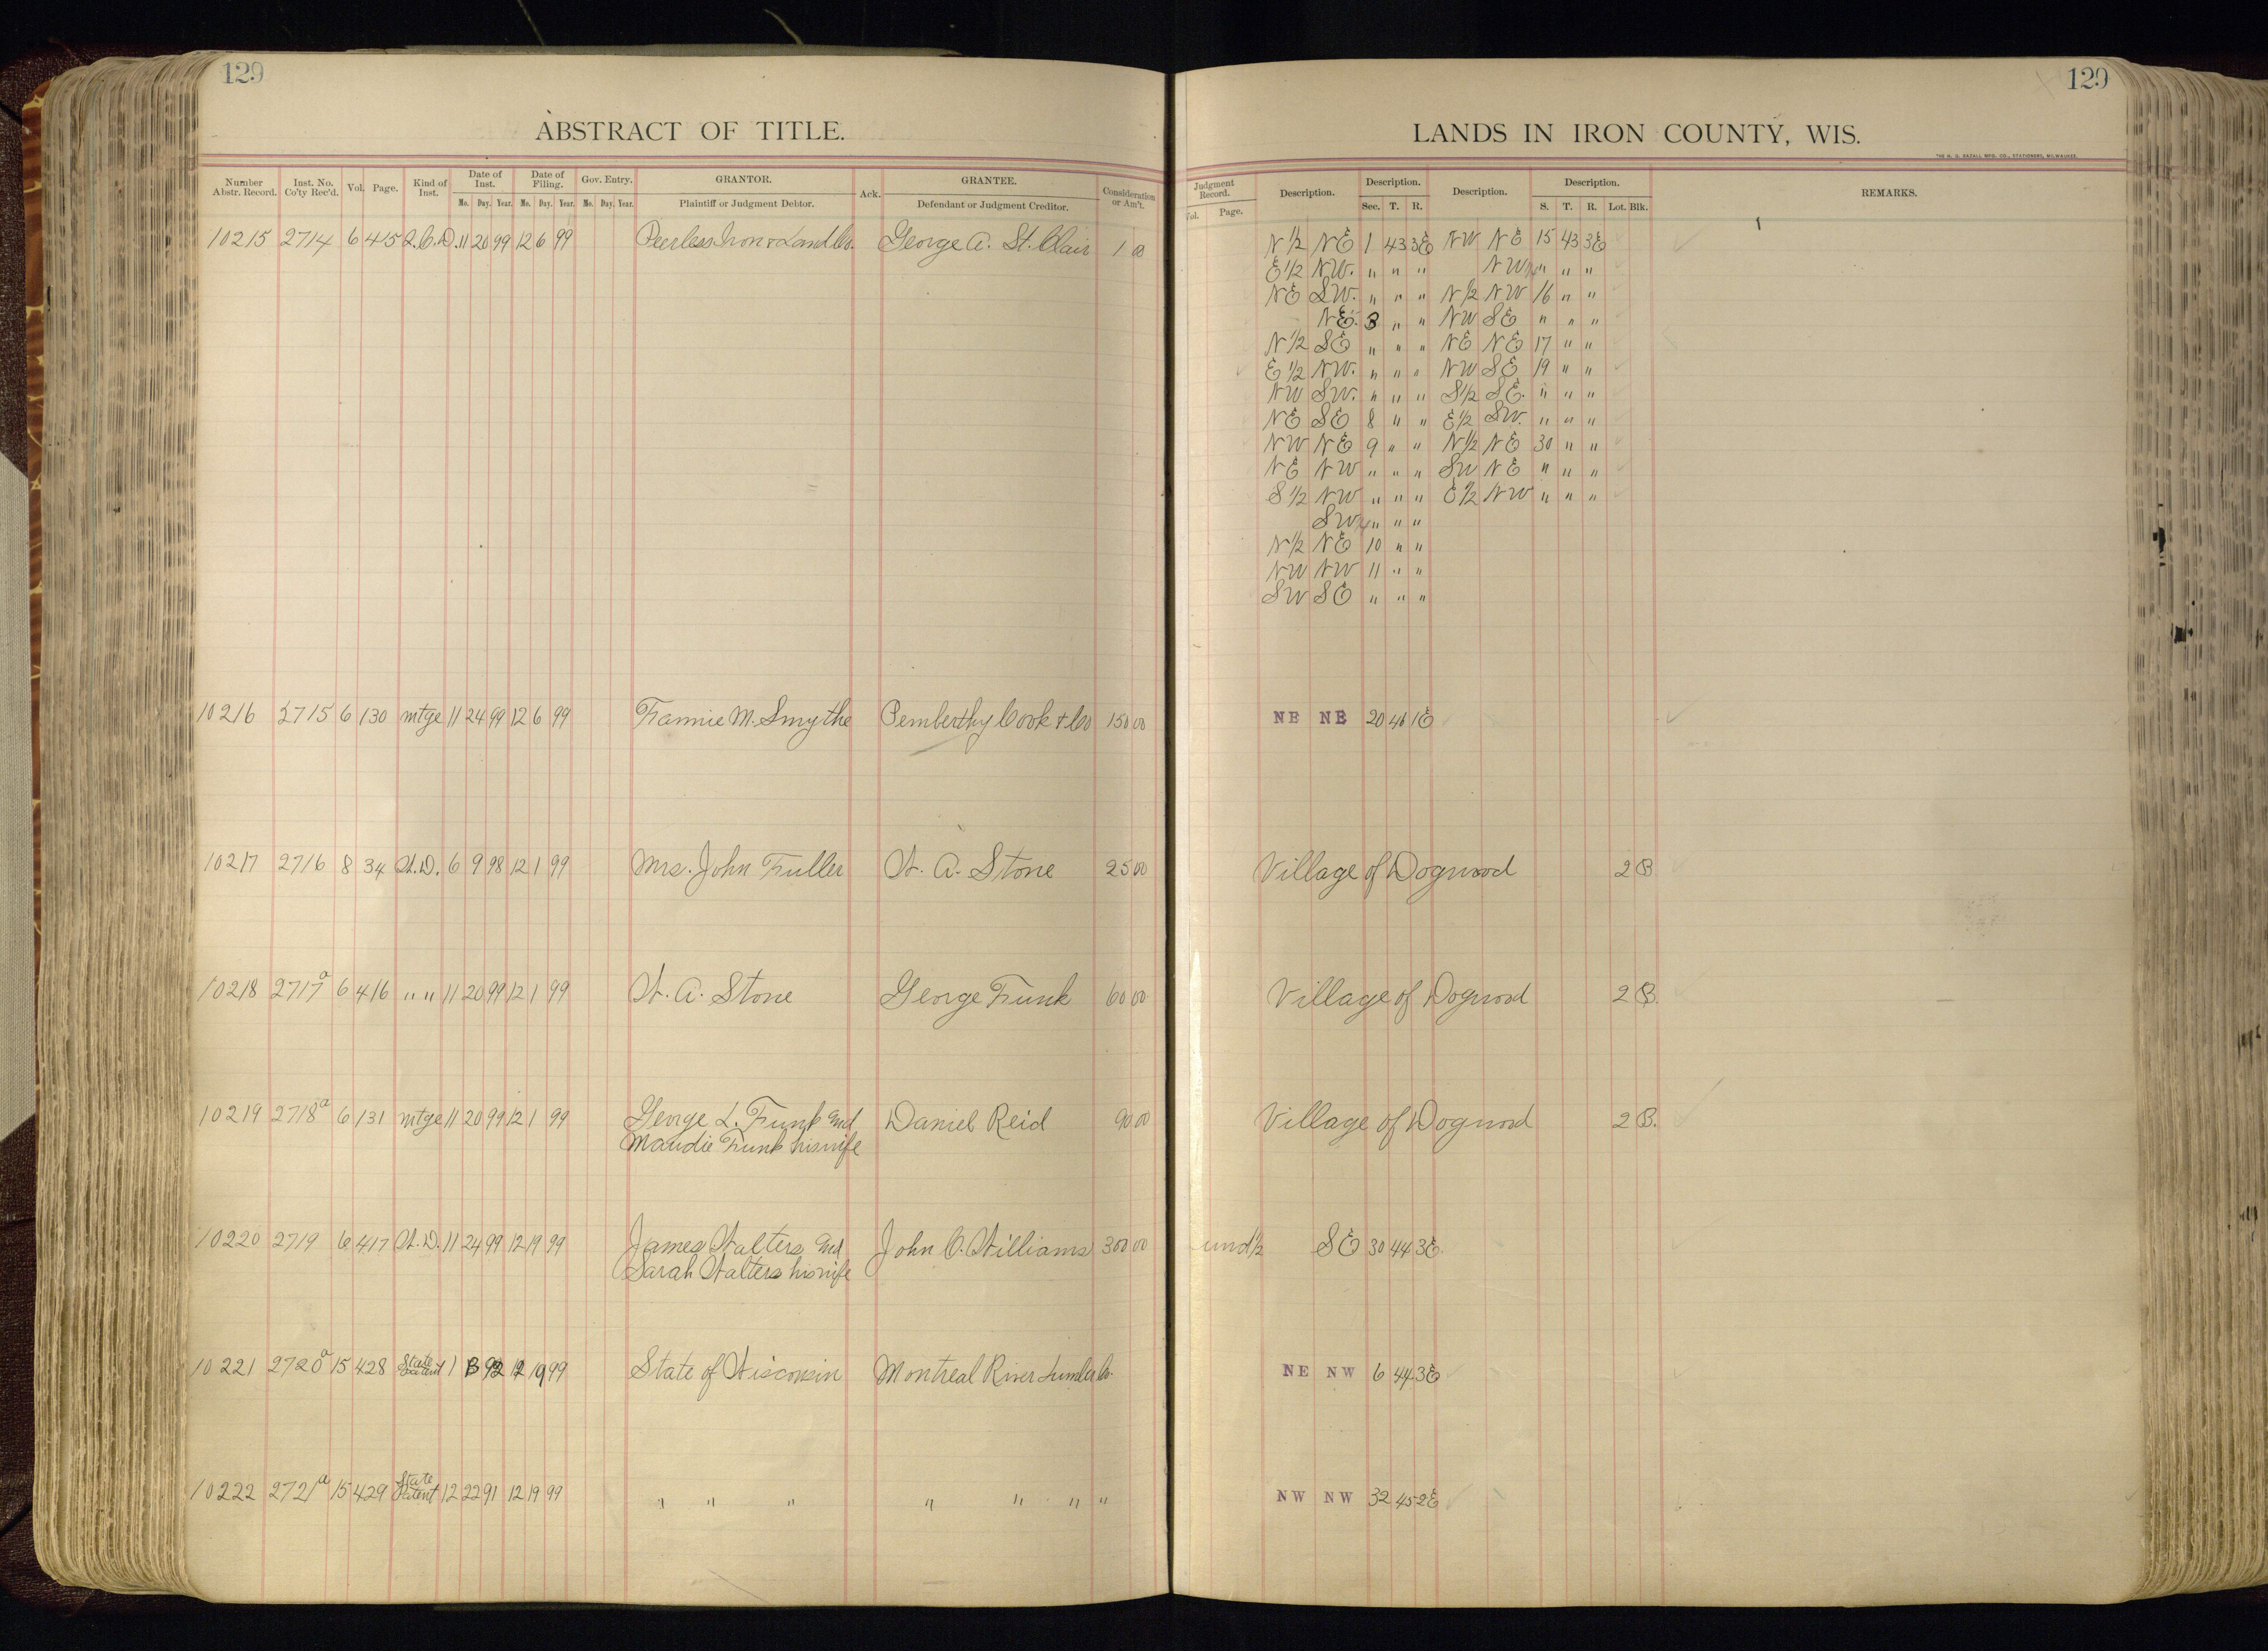 129
ABSTRACT OF TITLE.
Number Abstr. Record. Inst. No. Co'ty Rec'd. Vol. Page. Kind of Inst. Date of Inst. Mo. Day. Year. Date of Filing. Mo. Day. Year. Gov. Entry. Mo. Day. Year. GRANTOR. Plaintiff or Judgment Debtor. Ack. GRANTEE. Defendant or Judgment Creditor. Consideration or Am't.
10215 2714 6 415 Q.C.D. 11 20 99 12 6 99 Peerless Iron & Land Co. George A. St. Clair 1 00
10216 2715 6 130 mtge 11 24 99 12 6 99 Fannie M. Smythe Pemberthy Cook & Co 150 00
10217 2716 8 34 W.D. 6 9 98 12 1 99 Mrs. John Fuller W. A. Stone 25 00
10218 2717a 6 416 " " 11 20 99 12 1 99 W. A. Stone George Funk 60 00
10219 2718a 6 131 mtge 11 20 99 12 1 99 George L. Funk and Daniel Reid 90 00
Maudie Funk his wife
10220 2719 6 417 W.D. 11 24 99 12 19 99 James Walters and John C. Williams 300 00
Sarah Walters his wife
10221 2720a 15 428 State Patent 1 92 12 19 99 State of Wisconsin Montreal River Lumber Co.
10222 2721a 15 429 State Patent 12 22 91 12 19 99 " " " " " " "
129
LANDS IN IRON COUNTY, WIS.
THE H. G. RAZALL MFG. CO., STATIONERS, MILWAUKEE.
Judgment Record. Vol. Page. Description. Description. Sec. T. R. Description. Description. S. T. R. Lot. Blk. REMARKS.
N½ NE 1 43 3E NW NE 15 43 3E
E½ NW. " " " NW¼ " " "
NE SW. " " " N½ NW 16 " "
NE. 3 " " NW SE " " "
N½ SE " " " NE NE 17 " "
E½ NW. " " " NW SE 19 " "
NW SW. " " " S½ SE. " " "
NE SE 8 " " E½ SW. " " "
NW NE 9 " " N½ NE 30 " "
NE NW " " " SW NE " " "
S½ NW " " " E½ NW " " "
SW¼ " " "
N½ NE 10 " "
NW NW 11 " "
SW SE " " "
NE NE 20 46 1E
Village of Dogwood 2 B
Village of Dogwood 2 B.
Village of Dogwood 2 B.
und ½ SE 30 44 3E.
NE NW 6 44 3E
NW NW 32 45 2E